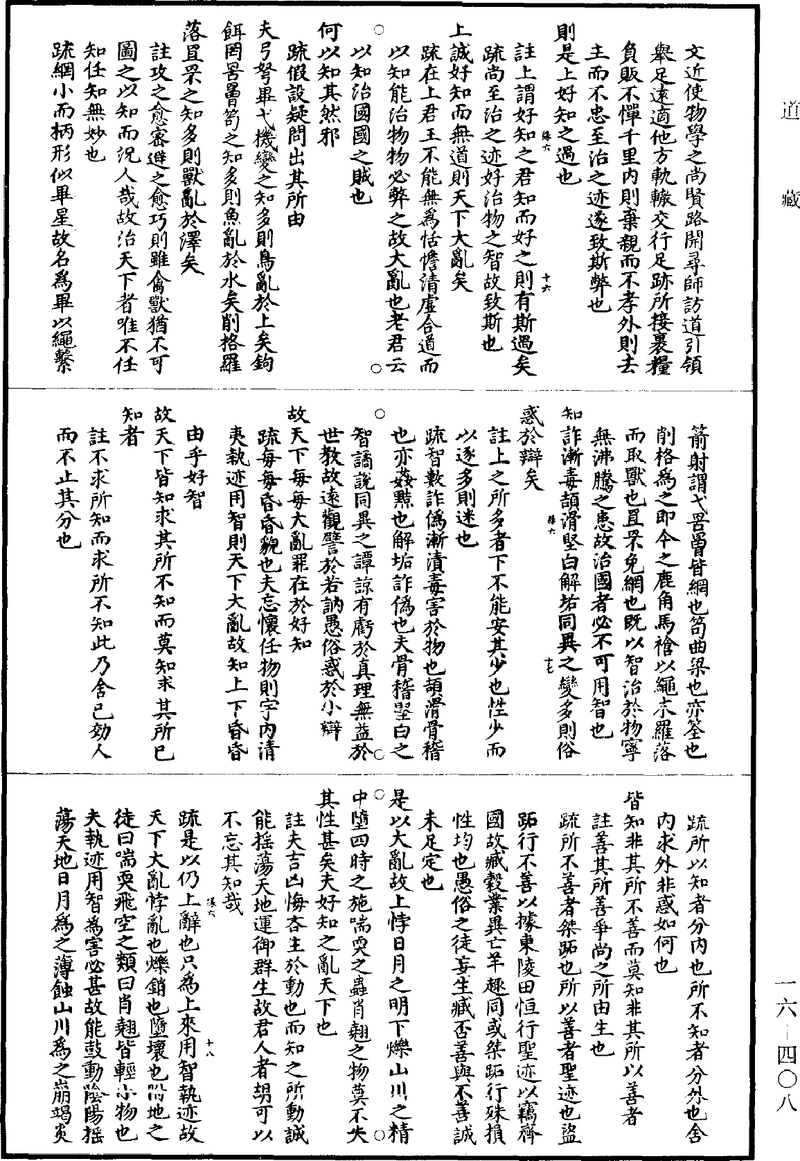 道藏
文近使物學之尚賢路開尋師訪道引領
舉足遠適他方軌轍交行足跡所接裹糧
負販不憚千里内則棄親而不孝外則去
主而不忠至治之迹遂致斯弊也
則是上好知之過也
註上謂好知之君知而好之則有斯過矣
疏尚至治之迹好治物之智故致斯也
上誠好知而無道則天下大亂矣
疏在上君王不能無為恬憺清虛合道而
以知能治物物必弊之故大亂也老君云
以知治國國之賊也
何以知其然邪
疏假設疑問出其所由
夫弓弩畢弋機變之知多則鳥亂於上矣鉤
餌罔罟罾笱之知多則魚亂於水矣削格羅
落罝罘之知多則獸亂於澤矣
註攻之愈密避之愈巧則雖禽獸猶不可
圖之以知而況人哉故治天下者唯不任
知任知無妙也
疏網小而柄形似畢星故名為畢以繩繫
箭射謂弋罟罾皆網也笱曲梁也亦筌也
削格為之即今之鹿角馬槍以繩木羅落
而取獸也罝罘兔網也既以智治於物寧
無沸騰之患故治國者必不可用智也
知詐漸毒頡滑堅白解垢同異之變多則俗
惑於辯矣
註上之所多者下不能安其少也性少而
以逐多則迷也
疏智數詐偽漸漬毒害於物也頡滑骨稽
也亦姦黠也解垢詐偽也夫骨稽堅白之
智譎說同異之譚諒有虧於真理無益於
世教故遠觀譬於若訥愚俗惑於小辯
故天下每每大亂罪在於好知
疏每每昏昏貌也夫忘懷任物則宇内清
夷執迹用智則天下大亂故知上下昏昏
由乎好智
故天下皆知求其所不知而莫知求其所已
知者
註不求所知而求所不知此乃舍已効人
而不止其分也
疏所以知者分内也所不知者分外也舍
内求外非惑如何也
皆知非其所不善而莫知非其所以善者
註善其所善爭尚之所由生也
疏所不善者桀跖也所以善者聖迹也盜
跖行不善以據東陵田恒行聖迹以竊齊
國故臧穀業異亡羊趣同或桀跖行殊損
性均也愚俗之徒妄生臧否善與不善誠
未足定也
是以大亂故上悖日月之明下爍山川之精
中墮四時之施喘耎之蟲肖翹之物莫不失
其性甚矣夫好知之亂天下也
註夫吉凶悔吝生於動也而知之所動誠
能搖蕩天地運御群生故君人者胡可以
不忘其知哉
疏是以仍上辭也只為上來用智執迹故
天下大亂悖亂也爍銷也墮壞也附地之
徒曰喘耎飛空之類曰肖翹皆輕小物也
夫執迹用智為害必甚故能鼓動陰陽搖
蕩天地日月為之薄蝕山川為之崩竭炎
一六—四〇八